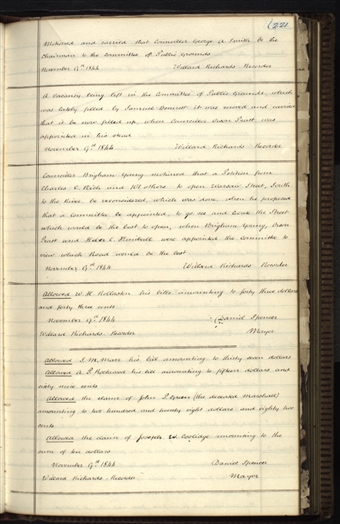 (221
Motioned and carried that Councillor George A Smith be the
Chairman to the Committee of Public Grounds
November 9th 1844 Willard Richards Recorder
A Vacancy being left in the Committee of Public Grounds, which
was lately filled by Samuel Bennett it was moved and carried
that it be now filled up, when Councillor Orson Pratt was
appointed in his stead
November 9th 1844 Willard Richards Recorder
Councillor Brigham Young motioned, that a Petition from
Charles C. Rich and 104 others to open Street, South
to the River, be reconsidered, which was done, when he proposed
that a Committee be appointed, to go see and locate the Street
which would be the best to open, when Brigham Young, Orson
Pratt and Heber C Kimball were appointed the Committee to
view which Road would be the best
November 9th 1844 Willard Richards Recorder
Allowed W. H. Rollosson his bills amounting to forty three dollars
and forty three cents
November 9th 1844 Daniel Spencer
Willard Richards Recorder Mayor
Allowed J. M. his bill amounting to thirty seven dollars
Allowed A. J. his bill amounting to fifteen dollars and
sixty nine cents
Allowed the claim of John P. Green (the deceased Marshall)
amounting to two hundred and twenty eight dollars and eighty two
cents
Allowed the claim of Joseph W. Coolidge amounting to the
sum of ten dollars
November 9th 1844 Daniel Spencer
Willard Richards Recorder Mayor